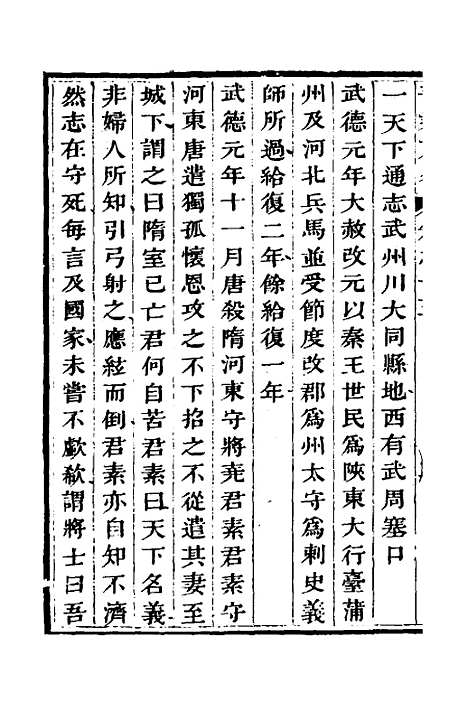 一天下通志武州川大同縣地西有武周塞口
武德元年大赦改元以秦王世民爲陝東大行臺蒲
州及河北兵馬並受節度改郡爲州太守爲刺史義
師所過給復二年餘給復一年
武德元年十一月唐殺隋河東守將堯君素君素守
河東唐遣獨孤懷恩攻之不下招之不從遣其妻至
城下謂之曰隋室已亡君何自苦君素曰天下名義
非婦人所知引弓射之應絃而倒君素亦自知不濟
然志在守死每言及國家未嘗不歔欷謂將士曰吾